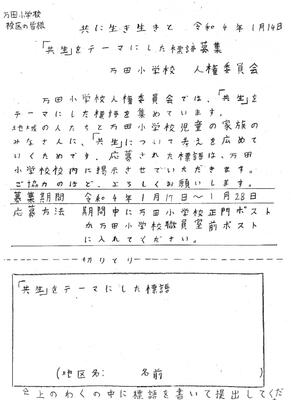 万田小学校
校区の皆様
共に生き生きと 令和4年1月14日
「共生」をテーマにした標語募集
万田小学校 人権委員会
万田小学校人権委員会では、「共生」を
テーマにした標語を集めています。
地域の人たちと万田小学校児童の家族の
みなさんに、「共生」について考えを広めて
いくためです。応募された標語は、万田
小学校校内に掲示させていただきます。
ご協力のほど、よろしくお願いします。
募集期間 令和4年1月17日～1月28日
応募方法 期間中に万田小学校正門ポスト
か万田小学校職員室前ポスト
に入れてください。
切りとり
「共生」をテーマにした標語
(地区名: 名前 )
上のわくの中に標語を書いて提出してくだ
さ